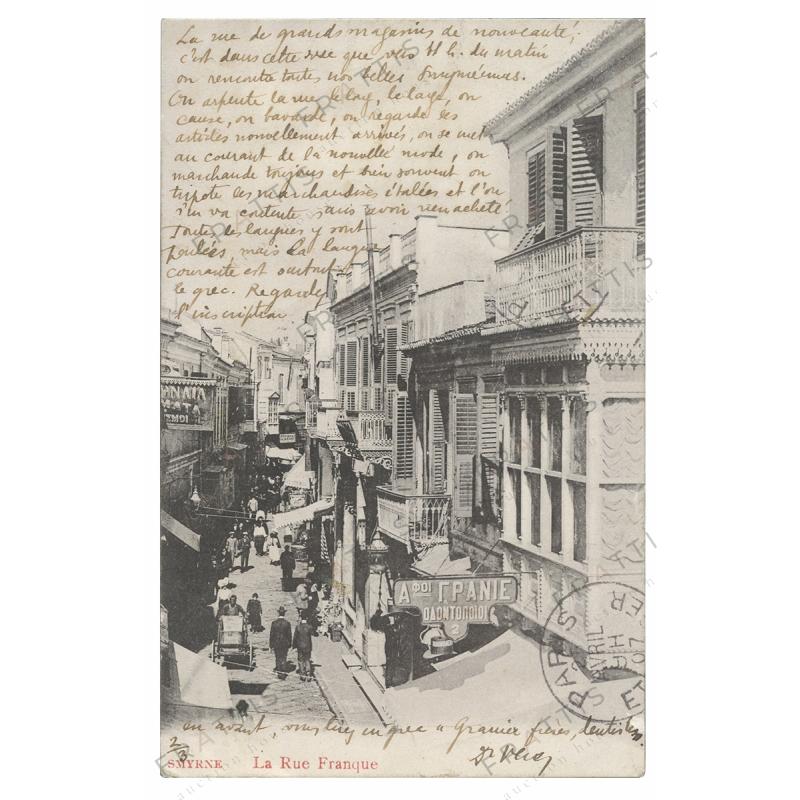 La rue de grands magasins de nouveauté;
c'est dans cette rue que vers 11 h. du matin
on rencontre toutes nos belles Smyrniennes.
On arpente la rue, le long, le large, on
cause, on bavarde, on regarde les
articles nouvellement arrivés, on se met
au courant de la nouvelle mode, on
marchande toujours et bien souvent on
tripote les marchandises étalées et l'on
s'en va contente sans avoir rien acheté
Toutes les langues y sont
parlées, mais la langue
courante est surtout
le grec. Regardez
l'inscription
ΑΦΟΙ ΓΡΑΝΙΕ
ΟΔΟΝΤΟΠΟΙΟΙ
2
PARIS
AVRIL
07
en avant, vous lirez en grec "Granier frères, dentistes.
2/3
SMYRNE La Rue Franque
FRATTIS
auction house